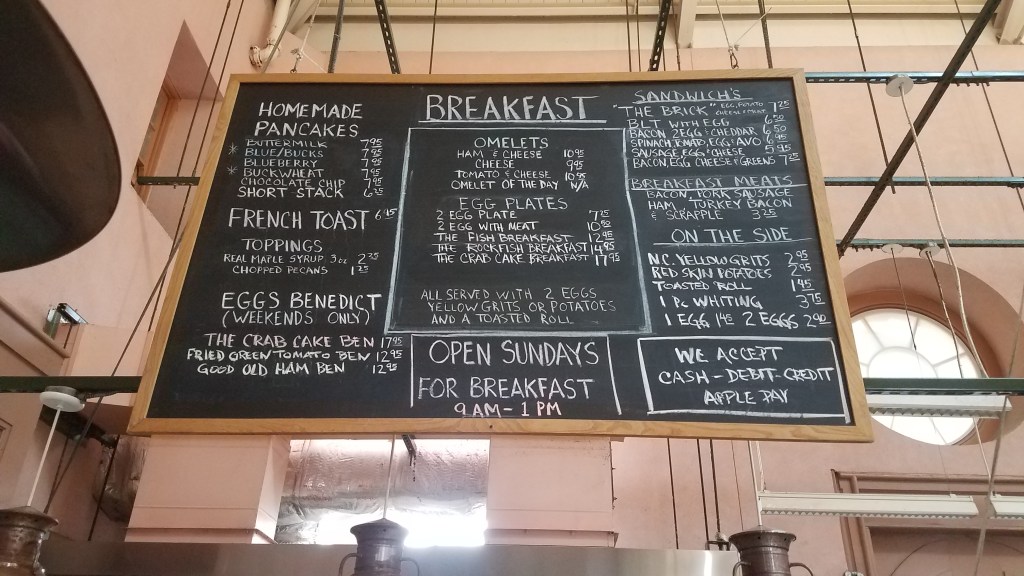 HOMEMADE
PANCAKES
BUTTERMILK 7.95
* BLUE/BUCKS 7.95
BLUEBERRY 7.95
* BUCKWHEAT 7.95
CHOCOLATE CHIP 7.95
SHORT STACK
FRENCH TOAST
TOPPINGS
REAL MAPLE SYRUP 3 oz 2.25
CHOPPED PECANS 1.25
EGGS BENEDICT
(WEEKENDS ONLY)
THE CRAB CAKE BEN 17.95
FRIED GREEN TOMATO BEN 12.95
GOOD OLD HAM BEN 12.95
BREAKFAST
OMELETS
HAM & CHEESE 10.95
CHEESE 9.95
TOMATO & CHEESE 10.95
OMELET OF THE DAY N/A
EGG PLATES
2 EGG PLATE
2 EGG WITH MEAT
THE FISH BREAKFAST
THE ROCKFISH BREAKFAST 14.95
THE CRAB CAKE BREAKFAST 17.95
ALL SERVED WITH 2 EGGS
YELLOW GRITS OR POTATOES
AND A TOASTED ROLL
OPEN SUNDAYS
FOR BREAKFAST
9 AM - 1 PM
SANDWICH'S
"THE BRICK" EGG, POTATO
BLT WITH EGG
BACON 2 EGG & CHEDDAR
SPINACH, TOMATO, EGG & AVO
SAUSAGE EGG & CHEESE 5.95
BACON, EGG CHEESE & GREENS
BREAKFAST MEATS
BACON, PORK SAUSAGE
HAM, TURKEY BACON
& SCRAPPLE 3.25
ON THE SIDE
N.C. YELLOW GRITS 2.95
RED SKIN POTATOES 2.95
TOASTED ROLL 1.95
1 Pc WHITING 3.75
1 EGG 1.45 2 EGGS 2.90
WE ACCEPT
CASH - DEBIT - CREDIT
APPLE PAY